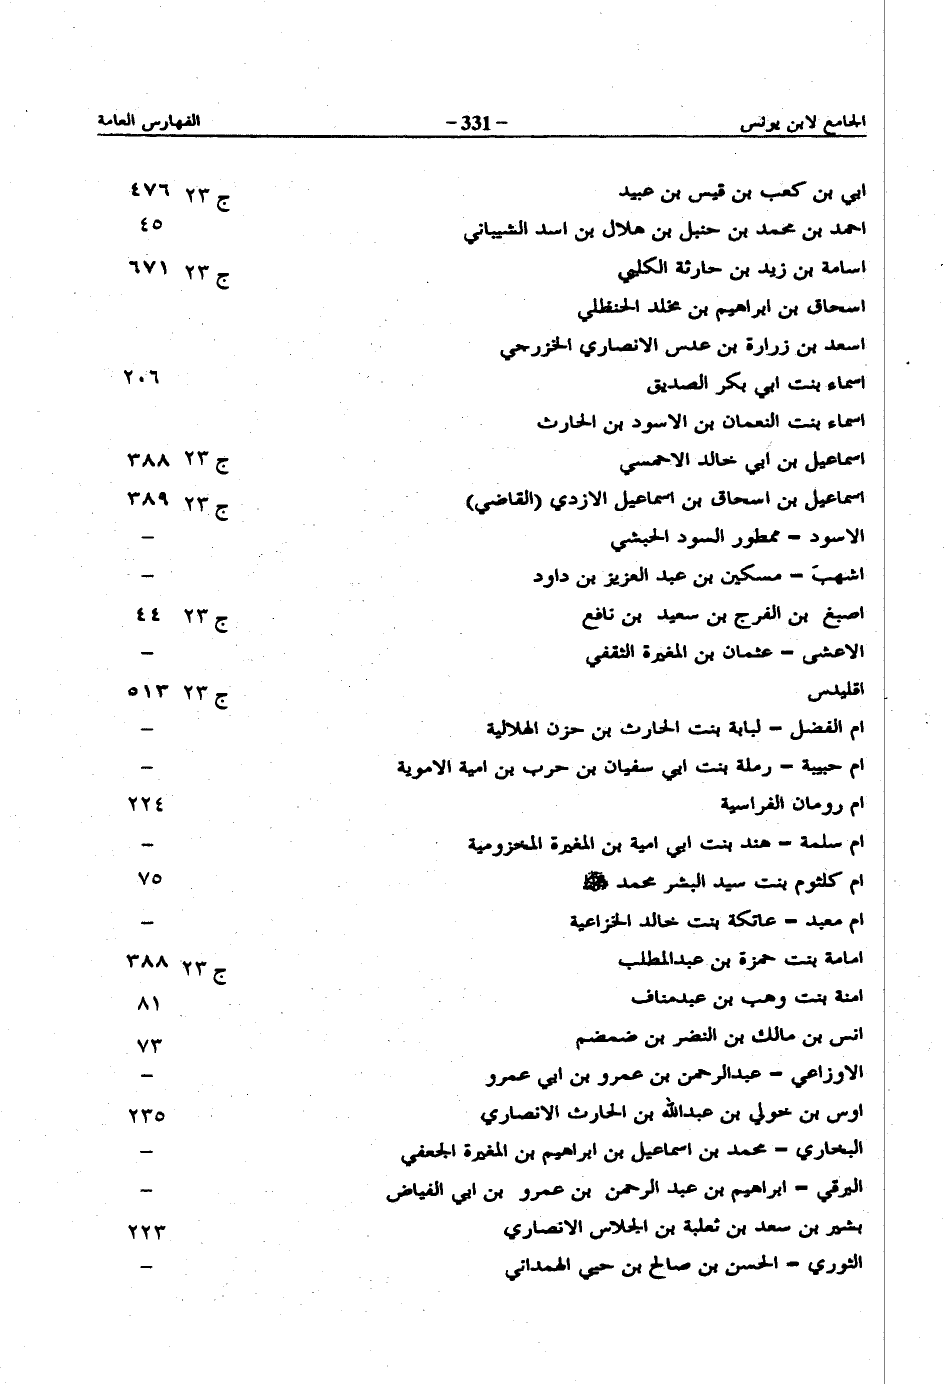 الجامع لابن يونس – 331 – الفهارس العامة
ابي بن كعب بن قيس بن عبيد ج ٢٣ ٤٧٦
احمد بن محمد بن حنبل بن هلال بن اسد الشيباني ٤٥
اسامة بن زيد بن حارثة الكلبي ج ٢٣ ٦٧١
اسحاق بن ابراهيم بن مخلد الحنظلي
اسعد بن زرارة بن عدس الانصاري الخزرجي
اسماء بنت ابي بكر الصديق ٢٠٦
اسماء بنت النعمان بن الاسود بن الحارث
اسماعيل بن ابي خالد الاحمسي ج ٢٣ ٣٨٨
اسماعيل بن اسحاق بن اسماعيل الازدي (القاضي) ج ٢٣ ٣٨٩
الاسود – ممطور السود الحبشي –
اشهب – مسكين بن عبد العزيز بن داود –
اصبغ بن الفرج بن سعيد بن نافع ج ٢٣ ٤٤
الاعشى – عثمان بن المغيرة الثقفي –
اقليدس ج ٢٣ ٥١٣
ام الفضل – لبابة بنت الحارث بن حزن الهلالية –
ام حبيبة – رملة بنت ابي سفيان بن حرب بن امية الاموية –
ام رومان الفراسية ٢٢٤
ام سلمة – هند بنت ابي امية بن المغيرة المخزومية –
ام كلثوم بنت سيد البشر محمد ﷺ ٧٥
ام معبد – عاتكة بنت خالد الخزاعية –
امامة بنت حمزة بن عبدالمطلب ج ٢٣ ٣٨٨
امنة بنت وهب بن عبدمناف ٨١
انس بن مالك بن النضر بن ضمضم ٧٣
الاوزاعي – عبدالرحمن بن عمرو بن ابي عمرو –
اوس بن خولي بن عبدالله بن الحارث الانصاري ٢٣٥
البخاري – محمد بن اسماعيل بن ابراهيم بن المغيرة الجعفي –
البرقي – ابراهيم بن عبد الرحمن بن عمرو بن ابي الفياض –
بشير بن سعد بن ثعلبة بن الجلاس الانصاري ٢٢٣
الثوري – الحسن بن صالح بن حيي الهمداني –